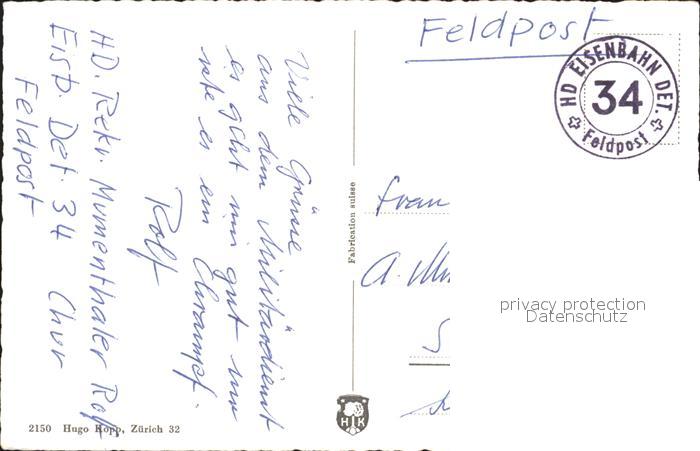 Feldpost
HD EISENBAHN DET.
34
Feldpost
Viele Grüsse
aus dem Militärdienst
es geht mir gut nur
ist es ein Chrampf.
Rolf
HD. Rekr. Mumenthaler Rolf
Eisb. Det. 34 Chur
Feldpost
Fabrication suisse
Frau
A.
privacy protection
Datenschutz
HK
2150 Hugo Kopp, Zürich 32